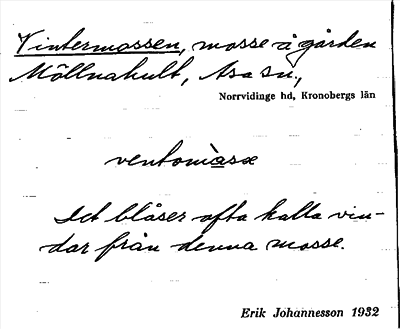 Vintermossen, mosse å gården
Möllnahult, Asa sn.,
Norrvidinge hd, Kronobergs län
Det blåser ofta kalla vin-
dar från denna mosse.
Erik Johannesson 1932